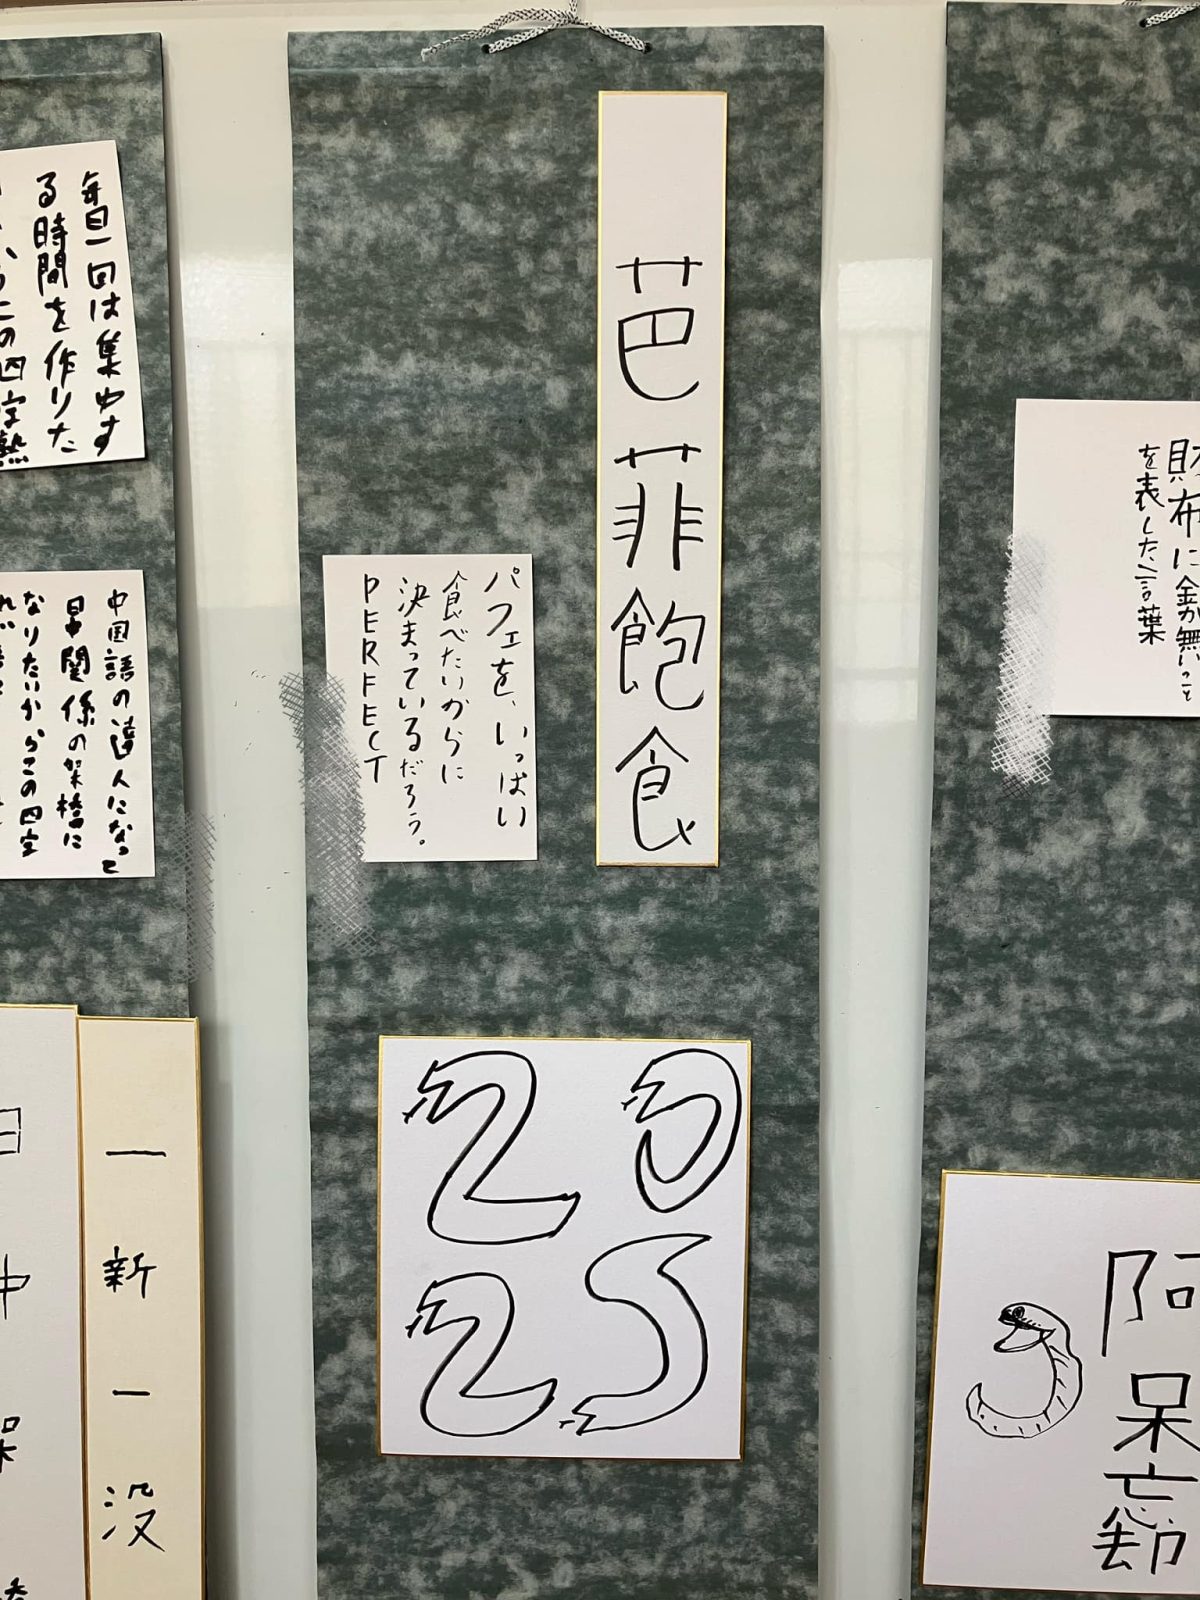 芭菲飽食
パフェを、いっぱい
食べたいからに
決まっているだろう。
PERFECT
20
25
毎日一回は集中す
る時間を作りた
の四字熟
中国語の達人になって
日中関係の架橋に
なりたいからこの四字
一新一没
財布に金が無いこと
を表した言葉
阿呆忘却